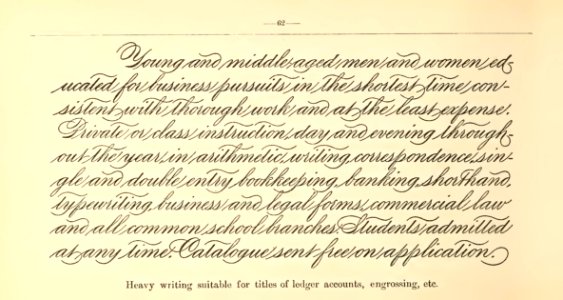 —62—
Young and middle aged men and women ed-
ucated for business pursuits in the shortest time con-
sistent with thorough work and at the least expense.
Private or class instruction, day and evening through-
out the year, in arithmetic, writing, correspondence, sin-
gle and double entry bookkeeping, banking, shorthand,
typewriting, business and legal forms, commercial law
and all common school branches. Students admitted
at any time. Catalogue sent free on application.
Heavy writing suitable for titles of ledger accounts, engrossing, etc.